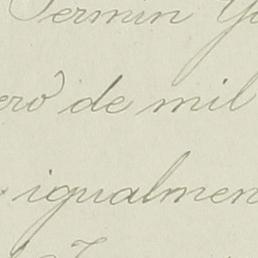 Fermin Go
ero de mil
igualmen